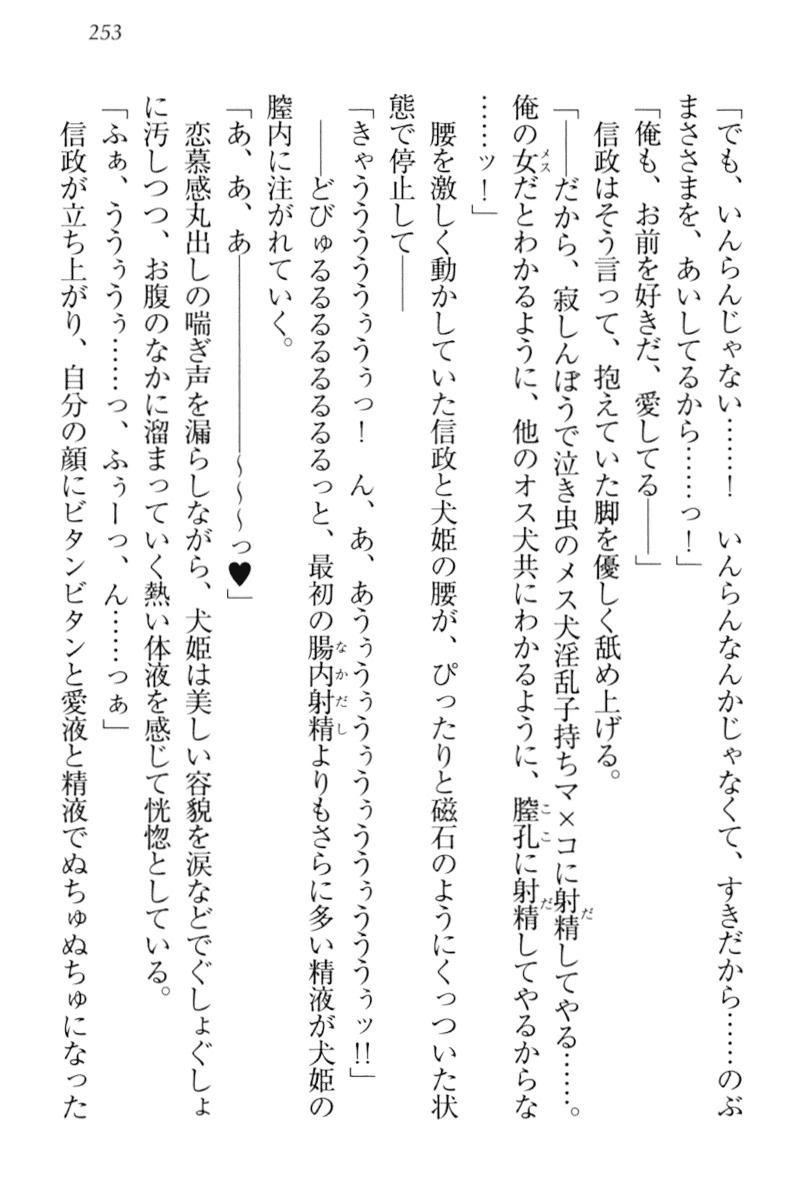 253
「でも、いんらんじゃない……！　いんらんなんかじゃなくて、すきだから……のぶ
まささまを、あいしてるから……っ！」
「俺も、お前を好きだ、愛してる――」
　信政はそう言って、抱えていた脚を優しく舐め上げる。
「――だから、寂しんぼうで泣き虫のメス犬淫乱子持ちマ×コに射精してやる……。
俺の女だとわかるように、他のオス犬共にわかるように、膣孔に射精してやるからな
……ッ！」
　腰を激しく動かしていた信政と犬姫の腰が、ぴったりと磁石のようにくっついた状
態で停止して――
「きゃうううううぅうぅっ！　ん、あ、あうぅうぅうぅうぅううぅうううぅッ!!」
　――どびゅるるるるるるるるっと、最初の腸内射精よりもさらに多い精液が犬姫の
膣内に注がれていく。
「あ、あ、あ――――――――～～～っ♥」
　恋慕感丸出しの喘ぎ声を漏らしながら、犬姫は美しい容貌を涙などでぐしょぐしょ
に汚しつつ、お腹のなかに溜まっていく熱い体液を感じて恍惚としている。
「ふぁ、ううぅうぅ……っ、ふぅーっ、ん……っぁ」
　信政が立ち上がり、自分の顔にビタンビタンと愛液と精液でぬちゅぬちゅになった